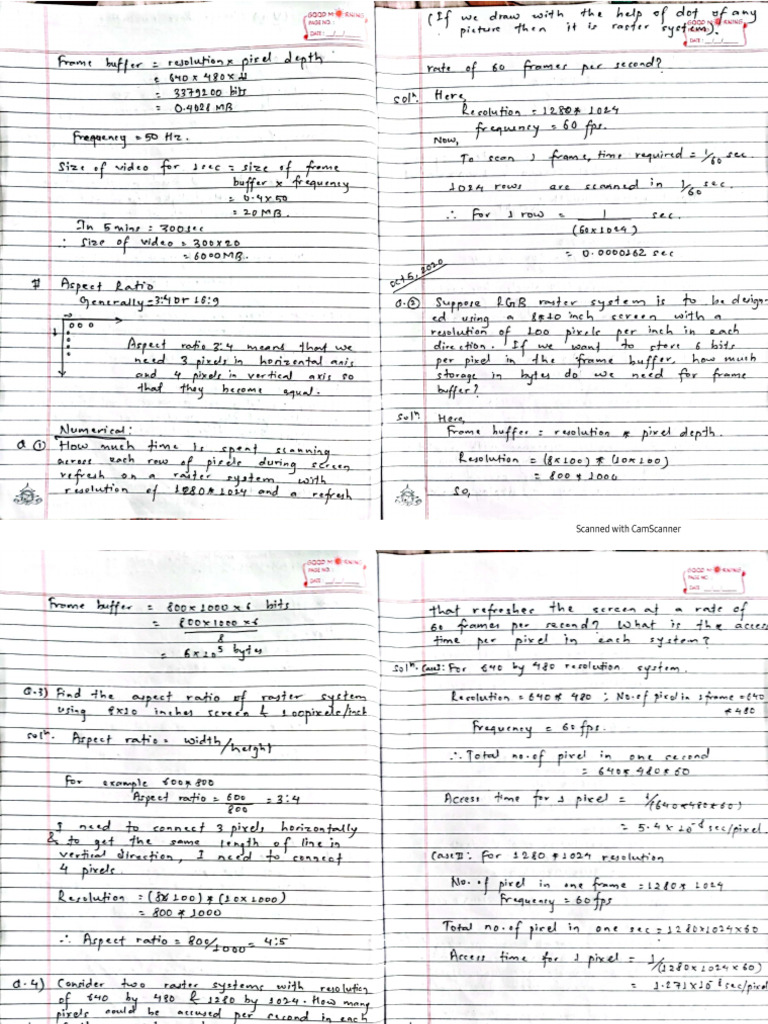 Frame buffer = resolution x pixel depth
= 640 x 480 x 11
= 3379200 bits
= 0.4028 MB
Frequency = 50 Hz.
Size of video for 1 sec = size of frame
buffer x frequency
= 0.4 x 50
= 20 MB.
In 5 mins : 300 sec
∴ Size of video = 300 x 20
= 6000 MB.
# Aspect Ratio
Generally = 3:4 or 16:9
Aspect ratio 3:4 means that we
need 3 pixels in horizontal axis
and 4 pixels in vertical axis so
that they become equal.
Numerical:
Q ① How much time is spent scanning
across each row of pixels during screen
refresh on a raster system with
resolution of 1280*1024 and a refresh
(If we draw with the help of dot of any
picture then it is raster system).
rate of 60 frames per second?
Solⁿ. Here,
Resolution = 1280 * 1024
frequency = 60 fps.
Now,
To scan 1 frame, time required = 1/60 sec.
1024 rows are scanned in 1/60 sec.
∴ For 1 row = 1 / (60x1024) sec.
= 0.0000162 sec
Oct 5, 2020
Q.② Suppose RGB raster system is to be design-
ed using a 8*10 inch screen with a
resolution of 100 pixels per inch in each
direction. If we want to store 6 bits
per pixel in the frame buffer, how much
storage in bytes do we need for frame
buffer?
Solⁿ Here,
Frame buffer = resolution * pixel depth.
Resolution = (8x100) * (10x100)
= 800 * 1000
So,
Scanned with CamScanner
Frame buffer = 800x1000x6 bits
= 800x1000x6 / 8
= 6x10⁵ bytes
Q.3) Find the aspect ratio of raster system
using 8x10 inches screen & 100 pixels/inch
Solⁿ. Aspect ratio = width/height
For example 600*800
Aspect ratio = 600/800 = 3:4
I need to connect 3 pixels horizontally
& to get the same length of line in
vertical direction, I need to connect
4 pixels.
Resolution = (8x100) * (10x1000)
= 800 * 1000
∴ Aspect ratio = 800/1000 = 4:5
Q.4) Consider two raster systems with resolution
of 640 by 480 & 1280 by 1024. How many
pixels could be accused per second in each
that refreshes the screen at a rate of
60 frames per second? What is the access
time per pixel in each system?
Solⁿ. Case I: For 640 by 480 resolution system.
Resolution = 640 * 480 ; No. of pixel in 1 frame = 640
* 480
Frequency = 60 fps.
∴ Total no. of pixel in one second
= 640 * 480 * 60
Access time for 1 pixel = 1/(640*480*60)
= 5.4 x 10⁻⁸ sec/pixel.
Case II: For 1280 * 1024 resolution
No. of pixel in one frame = 1280 * 1024
Frequency = 60 fps
Total no. of pixel in one sec = 1280x1024x60
Access time for 1 pixel = 1/(1280x1024x60)
= 1.271x10⁻⁸ sec/pixel